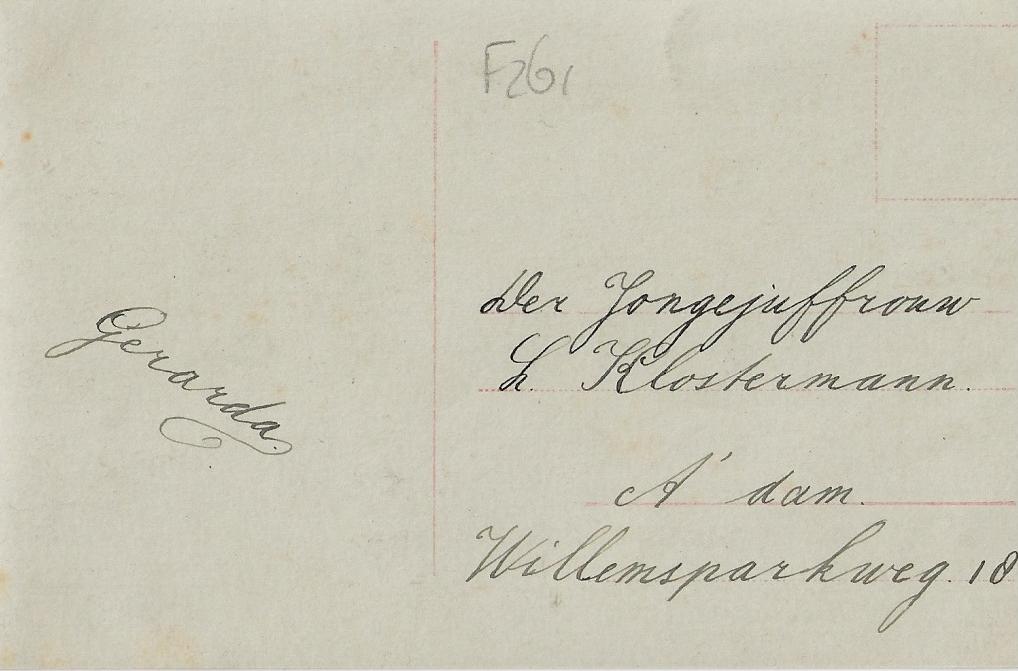 F261
Der Jongejuffrouw
L. Klostermann.
A'dam.
Willemsparkweg. 18
Gerarda.